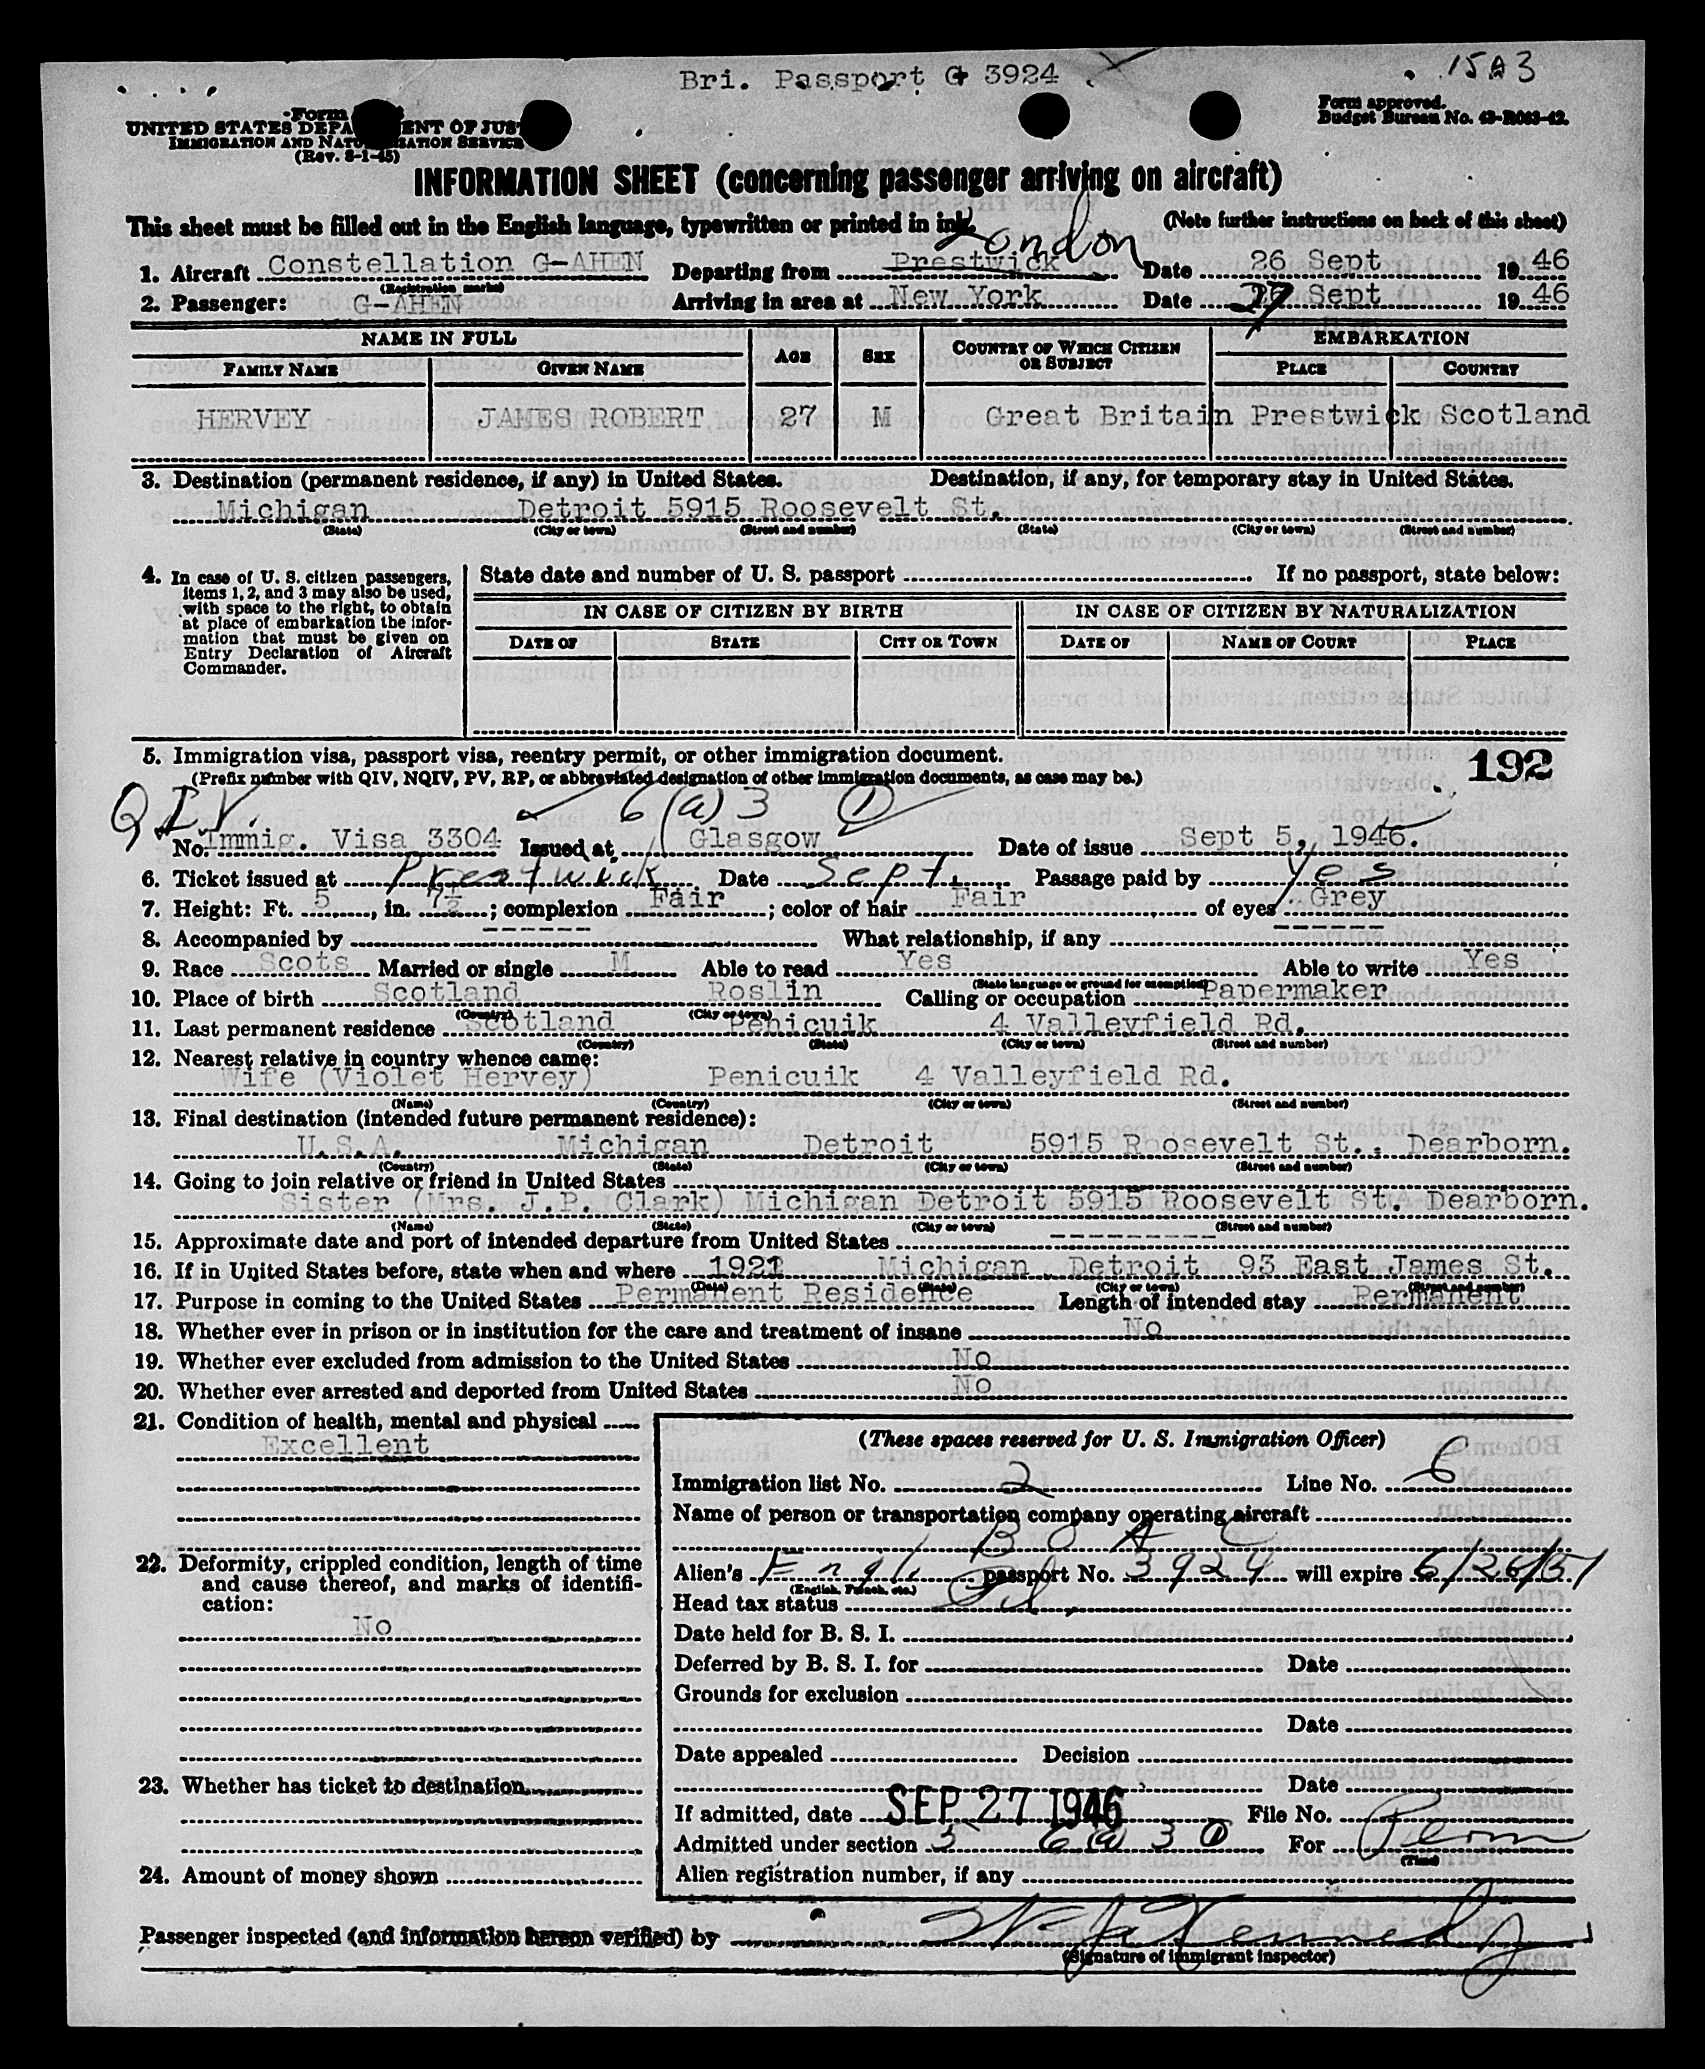 Bri. Passport G 3924
15A3
Form
UNITED STATES DEPA ENT OF JUS
IMMIGRATION AND NATU IZATION SERVICE
(Rev. 8-1-45)
Form approved.
Budget Bureau No. 43-R063-42.
INFORMATION SHEET (concerning passenger arriving on aircraft)
This sheet must be filled out in the English language, typewritten or printed in ink. (Note further instructions on back of this sheet)
London
1. Aircraft Constellation G-AHEN Departing from Prestwick Date 26 Sept 1946
(Registration marks)
2. Passenger: G-AHEN Arriving in area at New York Date 27 Sept 1946
NAME IN FULL AGE SEX COUNTRY OF WHICH CITIZEN OR SUBJECT EMBARKATION
FAMILY NAME GIVEN NAME PLACE COUNTRY
HERVEY JAMES ROBERT 27 M Great Britain Prestwick Scotland
3. Destination (permanent residence, if any) in United States. Destination, if any, for temporary stay in United States.
Michigan Detroit 5915 Roosevelt St.
(State) (City or town) (Street and number) (State) (City or town) (Street and number)
4. In case of U. S. citizen passengers, items 1, 2, and 3 may also be used, with space to the right, to obtain at place of embarkation the information that must be given on Entry Declaration of Aircraft Commander.
State date and number of U. S. passport If no passport, state below:
IN CASE OF CITIZEN BY BIRTH IN CASE OF CITIZEN BY NATURALIZATION
DATE OF STATE CITY OR TOWN DATE OF NAME OF COURT PLACE
5. Immigration visa, passport visa, reentry permit, or other immigration document. 192
(Prefix number with QIV, NQIV, PV, RP, or abbreviated designation of other immigration documents, as case may be.)
QIV. 6(a)3 (1)
No. Immig. Visa 3304 Issued at Glasgow Date of issue Sept 5, 1946.
6. Ticket issued at Prestwick Date Sept. Passage paid by Yes
7. Height: Ft. 5, in. 7½; complexion Fair; color of hair Fair of eyes Grey
8. Accompanied by ------ What relationship, if any ------
9. Race Scots Married or single M Able to read Yes Able to write Yes
(State language or ground for exemption)
10. Place of birth Scotland Roslin Calling or occupation Papermaker
(Country) (City or town)
11. Last permanent residence Scotland Penicuik 4 Valleyfield Rd.
(Country) (State) (City or town) (Street and number)
12. Nearest relative in country whence came:
Wife (Violet Hervey) Penicuik 4 Valleyfield Rd.
(Name) (Country) (City or town) (Street and number)
13. Final destination (intended future permanent residence):
U.S.A. Michigan Detroit 5915 Roosevelt St., Dearborn.
(Country) (State) (City or town) (Street and number)
14. Going to join relative or friend in United States
Sister (Mrs. J.P. Clark) Michigan Detroit 5915 Roosevelt St. Dearborn.
(Name) (State) (City or town) (Street and number)
15. Approximate date and port of intended departure from United States ---------
16. If in United States before, state when and where 1921 Michigan Detroit 93 East James St.
(Date) (State) (City or town) (Street and number)
17. Purpose in coming to the United States Permanent Residence Length of intended stay Permanent
18. Whether ever in prison or in institution for the care and treatment of insane No
19. Whether ever excluded from admission to the United States No
20. Whether ever arrested and deported from United States No
21. Condition of health, mental and physical
Excellent
22. Deformity, crippled condition, length of time and cause thereof, and marks of identification:
No
23. Whether has ticket to destination
24. Amount of money shown
(These spaces reserved for U. S. Immigration Officer)
Immigration list No. 2 Line No. 6
Name of person or transportation company operating aircraft
B O A C
Alien's Engl. passport No. 3924 will expire 6/26/51
(English, French, etc.)
Head tax status Pd.
Date held for B. S. I.
Deferred by B. S. I. for Date
Grounds for exclusion
Date
Date appealed Decision
Date
If admitted, date SEP 27 1946 File No.
Admitted under section 5 6(a)3 (1) For Perm
(Time)
Alien registration number, if any
Passenger inspected (and information hereon verified) by Kennedy
(Signature of immigrant inspector)